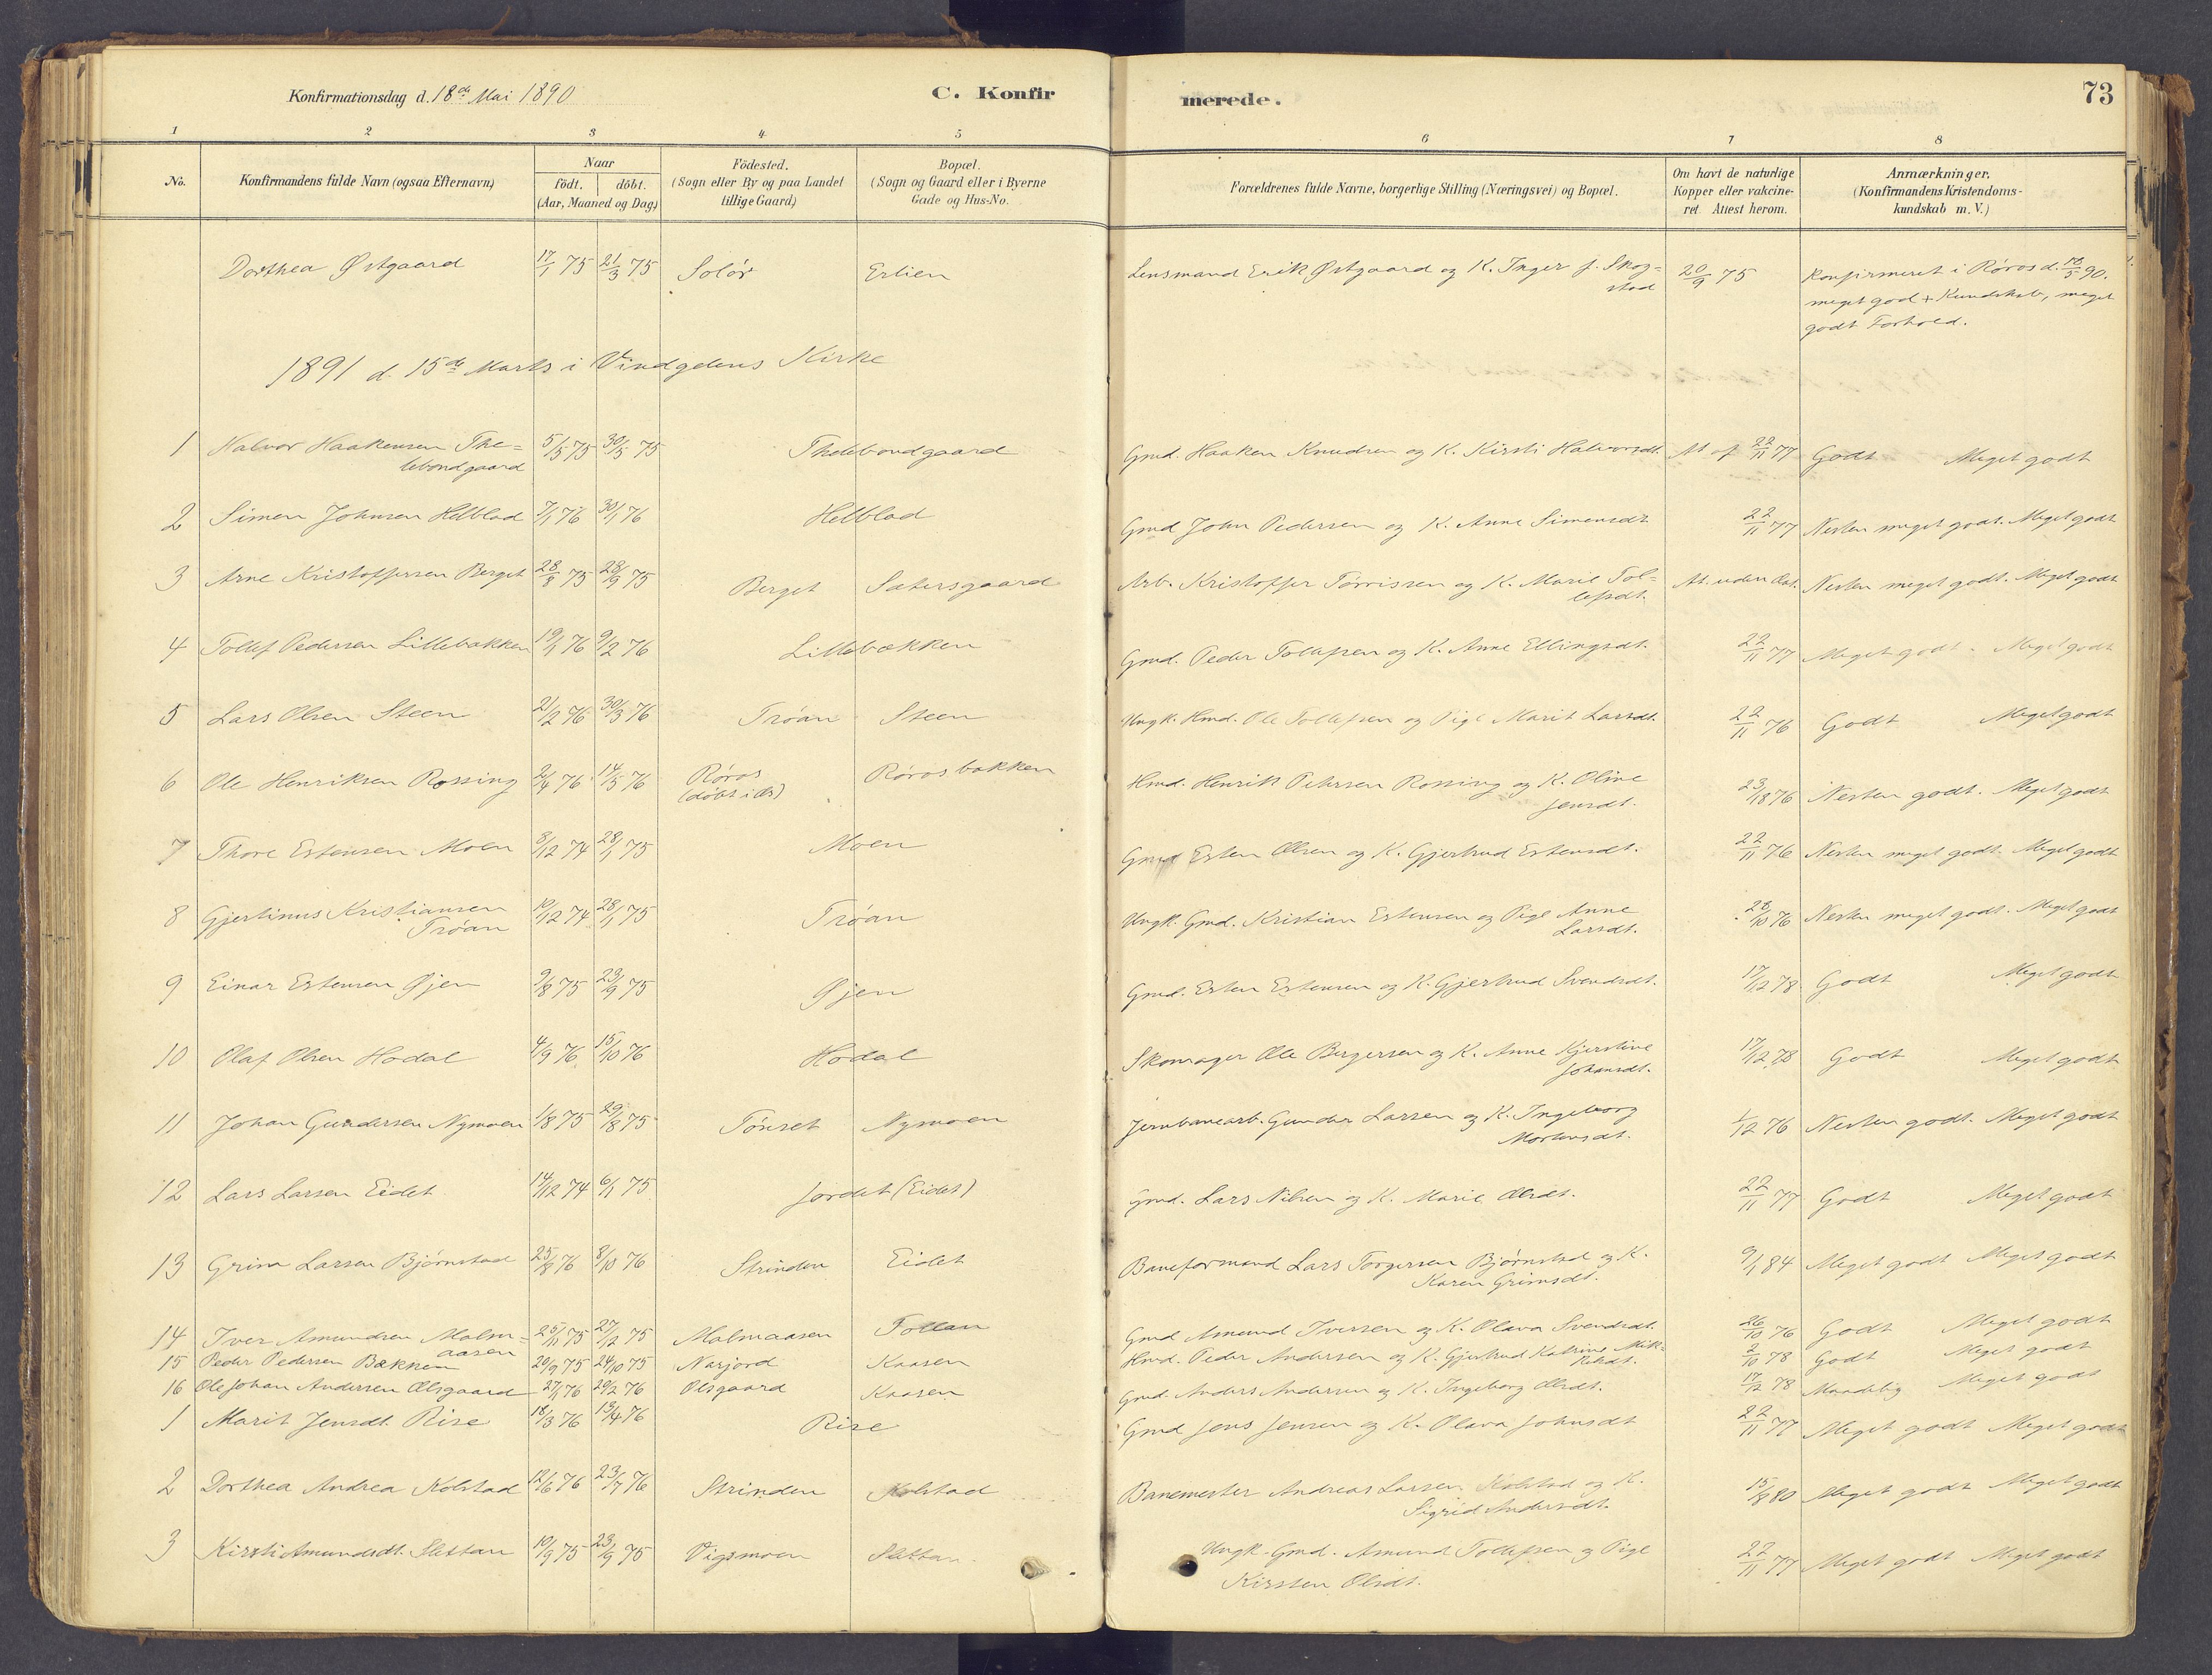 Konfirmationsdag d. 18de Mai 1890 C. Konfirmerede. 73
1 2 3 4 5 6 7 8
No. Konfirmandens fulde Navn (ogsaa Efternavn) Naar födt. döbt. (Aar, Maaned og Dag) Födested. (Sogn eller By og paa Landet tillige Gaard) Bopæl. (Sogn og Gaard eller i Byerne Gade og Hus-No. Forældrenes fulde Navne, borgerlige Stilling (Næringsvei) og Bopæl. Om havt de naturlige Kopper eller vakcineret Attest herom. Anmærkninger. (Konfirmandens Kristendomskundskab m. V.)
Dorthea Østgaard 17/1 75 21/3 75 Solör Erlien Lensmand Erik Østgaard og K. Inger f. Skogstad 20/9 75 Konfirmeret i Røros d. 18/5 90. meget god + Kundskab, meget godt Forhold.
1891 d. 15de Marts i Vindgelens Kirke
1 Halvor Haakensen Thelebondgaard 5/5 75 30/5 75 Thelebondgaard Gmd. Haaken Knudsen og K. Kirsti Halvorsdt. At. af 22/11 77 Godt Meget godt
2 Simen Johnsen Helblad 7/1 76 30/1 76 Helblad Gmd John Pedersen og K. Anne Simensdt. 22/11 77 Nesten meget godt. Meget godt
3 Arne Kristoffersen Berget 28/8 75 28/9 75 Berget Sætersgaard Arb. Kristoffer Tørrissen og K. Marie Tollefsdt. At. uden Dat. Nesten meget godt. Meget godt
4 Tollef Pedersen Lillebakken 19/1 76 9/2 76 Lillebækken Gmd. Peder Tollefsen og K. Anne Ellingsdt. 22/11 77 Meget godt. Meget godt
5 Lars Olsen Steen 2/2 76 30/3 76 Trøan Steen Ungk. Hmd. Ole Tollefsen og Pige Marit Larsdt. 22/11 76 Godt Meget godt
6 Ole Henriksen Rossing 2/4 76 14/5 76 Røros (døbt i Os) Rørosbakken Hmd. Henrik Petersen Rossing og K. Oline Jensdt. 23/18 76 Nesten godt. Meget godt
7 Thore Estensen Moen 8/12 74 28/1 75 Moen Gmd Esten Olsen og K. Gjertrud Estensdt. 22/11 76 Nesten meget godt. Meget godt
8 Gjertinus Kristiansen Trøan 10/12 74 28/1 75 Trøan Ungk. Gmd. Kristian Estensen og Pige Anne Larsdt. 28/10 76 Nesten meget godt. Meget godt
9 Einar Estensen Øjen 9/8 75 23/9 75 Øjen Gmd. Esten Estensen og K. Gjertrud Svendsdt. 17/12 78 Godt Meget godt
10 Olaf Olsen Hodal 4/9 76 15/10 76 Hodal Skomager Ole Bergersen og K. Anne Kjerstine Johansdt. 17/12 78 Godt Meget godt
11 Johan Gundersen Nymoen 1/8 75 29/8 75 Tönset Nymoen Jernbanearb. Gunder Larsen og K. Ingeborg Mortensdt. 1/12 76 Nesten godt. Meget godt
12 Lars Larsen Eidet 14/12 74 6/1 75 Jordet (Eidet) Gmd. Lars Nilsen og K. Marie Olsdt. 22/11 77 Godt Meget godt
13 Grim Larsen Bjørnstad 25/8 76 8/10 76 Strinden Eidet Baneformand Lars Torgersen Bjørnstad og K. Karen Grimsdt. 9/1 84 Meget godt Meget godt
14 Iver Amundsen Malmaasen 25/11 75 27/12 75 Malmaasen Tollan Gmd Amund Iversen og K. Olava Svendsdt. 26/10 76 Godt Meget godt
15 Peder Pedersen Bækken 20/9 75 24/10 75 Narjord Kaasen Hmd. Peder Andersen og K. Gjertrud Katrine Mikkelsdt. 2/10 78 Godt Meget godt
16 Ole Johan Andersen Olsgaard 27/1 76 20/2 76 Olsgaard Kaasen Gmd. Anders Andersen og K. Ingeborg Olsdt. 17/12 78 Maadelig Meget godt
1 Marit Jensdt. Rise 18/3 76 13/4 76 Rise Gmd Jens Jensen og K. Olava Johnsdt 22/11 77 Meget godt Meget godt
2 Dorthea Andrea Kolstad 12/6 76 23/7 76 Strinden Kolstad Banemester Andreas Larsen Kolstad og K. Sigrid Andersdt. 15/8 80 Meget godt Meget godt
3 Kirsti Amundsdt. Slettan 10/9 75 23/9 75 Vigsmoen Slettan. Ungk. Gmd. Amund Tollefsen og Pige Kirsten Olsdt. 22/11 77 Meget godt Meget godt